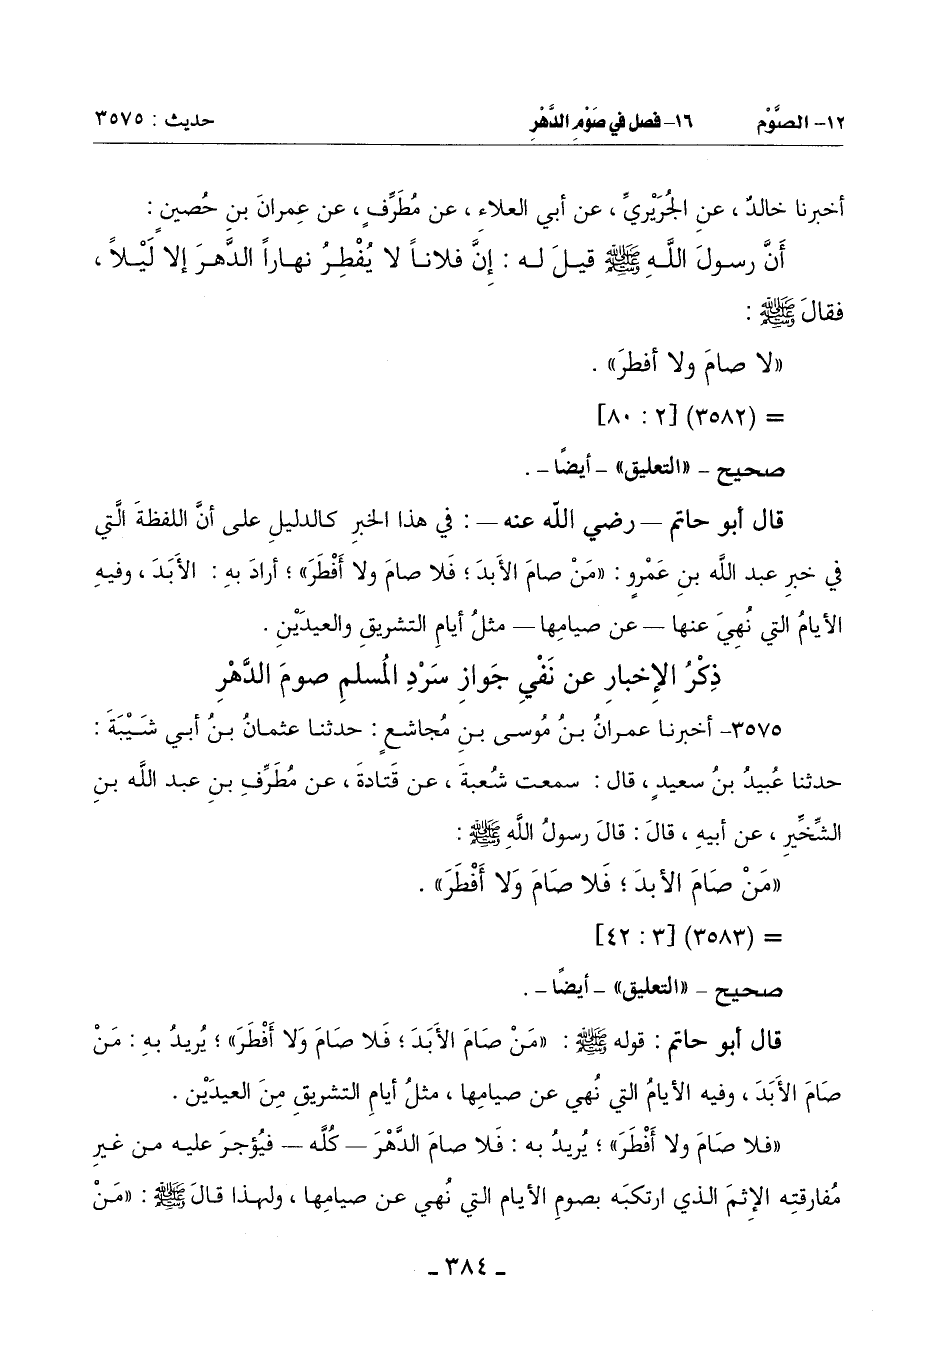 ١٢- الصَّوْم ١٦- فصل في صَوْمِ الدَّهْرِ حديث : ٣٥٧٥
أخبرنا خالدٌ ، عنِ الجُرَيْريِّ ، عن أبي العلاءِ ، عن مُطَرِّفٍ ، عن عِمرانَ بنِ حُصينٍ :
أَنَّ رسولَ اللَّهِ ﷺ قيلَ له : إنَّ فلاناً لا يُفْطِرُ نهاراً الدَّهرَ إلا لَيْلاً ،
فقالَ ﷺ :
«لا صامَ ولا أفطرَ» .
= (٣٥٨٢) [٢ : ٨٠]
صحيح – «التعليق» – أيضًا – .
قال أبو حاتم – رضي اللّه عنه – : في هذا الخبرِ كالدليلِ على أنَّ اللفظةَ الَّتي
في خبرِ عبد اللَّه بنِ عَمْرو : «مَنْ صامَ الأَبدَ ؛ فَلا صامَ ولا أَفْطَرَ» ؛ أرادَ بهِ : الأبَدَ ، وفيهِ
الأيامُ التي نُهِيَ عنها – عن صيامِها – مثلُ أيامِ التشريقِ والعيدَيْنِ .
ذِكْرُ الإخبارِ عن نَفْيِ جَوازِ سَرْدِ المُسلمِ صومَ الدَّهْرِ
٣٥٧٥- أخبرنا عمرانُ بنُ مُوسى بنِ مُجاشعٍ : حدثنا عثمانُ بنُ أبي شَيْبَةَ :
حدثنا عُبيدُ بنُ سعيدٍ ، قال : سمعت شُعبةَ ، عن قَتادةَ ، عن مُطَرِّفِ بنِ عبد اللَّه بنِ
الشِّخِّيرِ ، عن أبيهِ ، قالَ : قالَ رسولُ اللَّهِ ﷺ :
«مَنْ صَامَ الأبدَ ؛ فَلا صَامَ وَلا أَفْطَرَ» .
= (٣٥٨٣) [٣ : ٤٢]
صحيح – «التعليق» – أيضًا – .
قال أبو حاتم : قوله ﷺ : «مَنْ صَامَ الأَبَدَ ؛ فَلا صَامَ وَلا أَفْطَرَ» ؛ يُريدُ به : مَنْ
صَامَ الأَبَدَ ، وفيه الأيامُ التي نُهي عن صيامِها ، مثلُ أيامِ التشريقِ مِنَ العيدَيْن .
«فلا صَامَ ولا أَفْطَرَ» ؛ يُريدُ به : فَلا صامَ الدَّهْرَ – كُلَّه – فيُؤجرَ عليه من غيرِ
مُفارقتِه الإثمَ الذي ارتكبَه بصومِ الأيام التي نُهي عن صيامِها ، ولهذا قالَ ﷺ : «مَنْ
- ٣٨٤ -